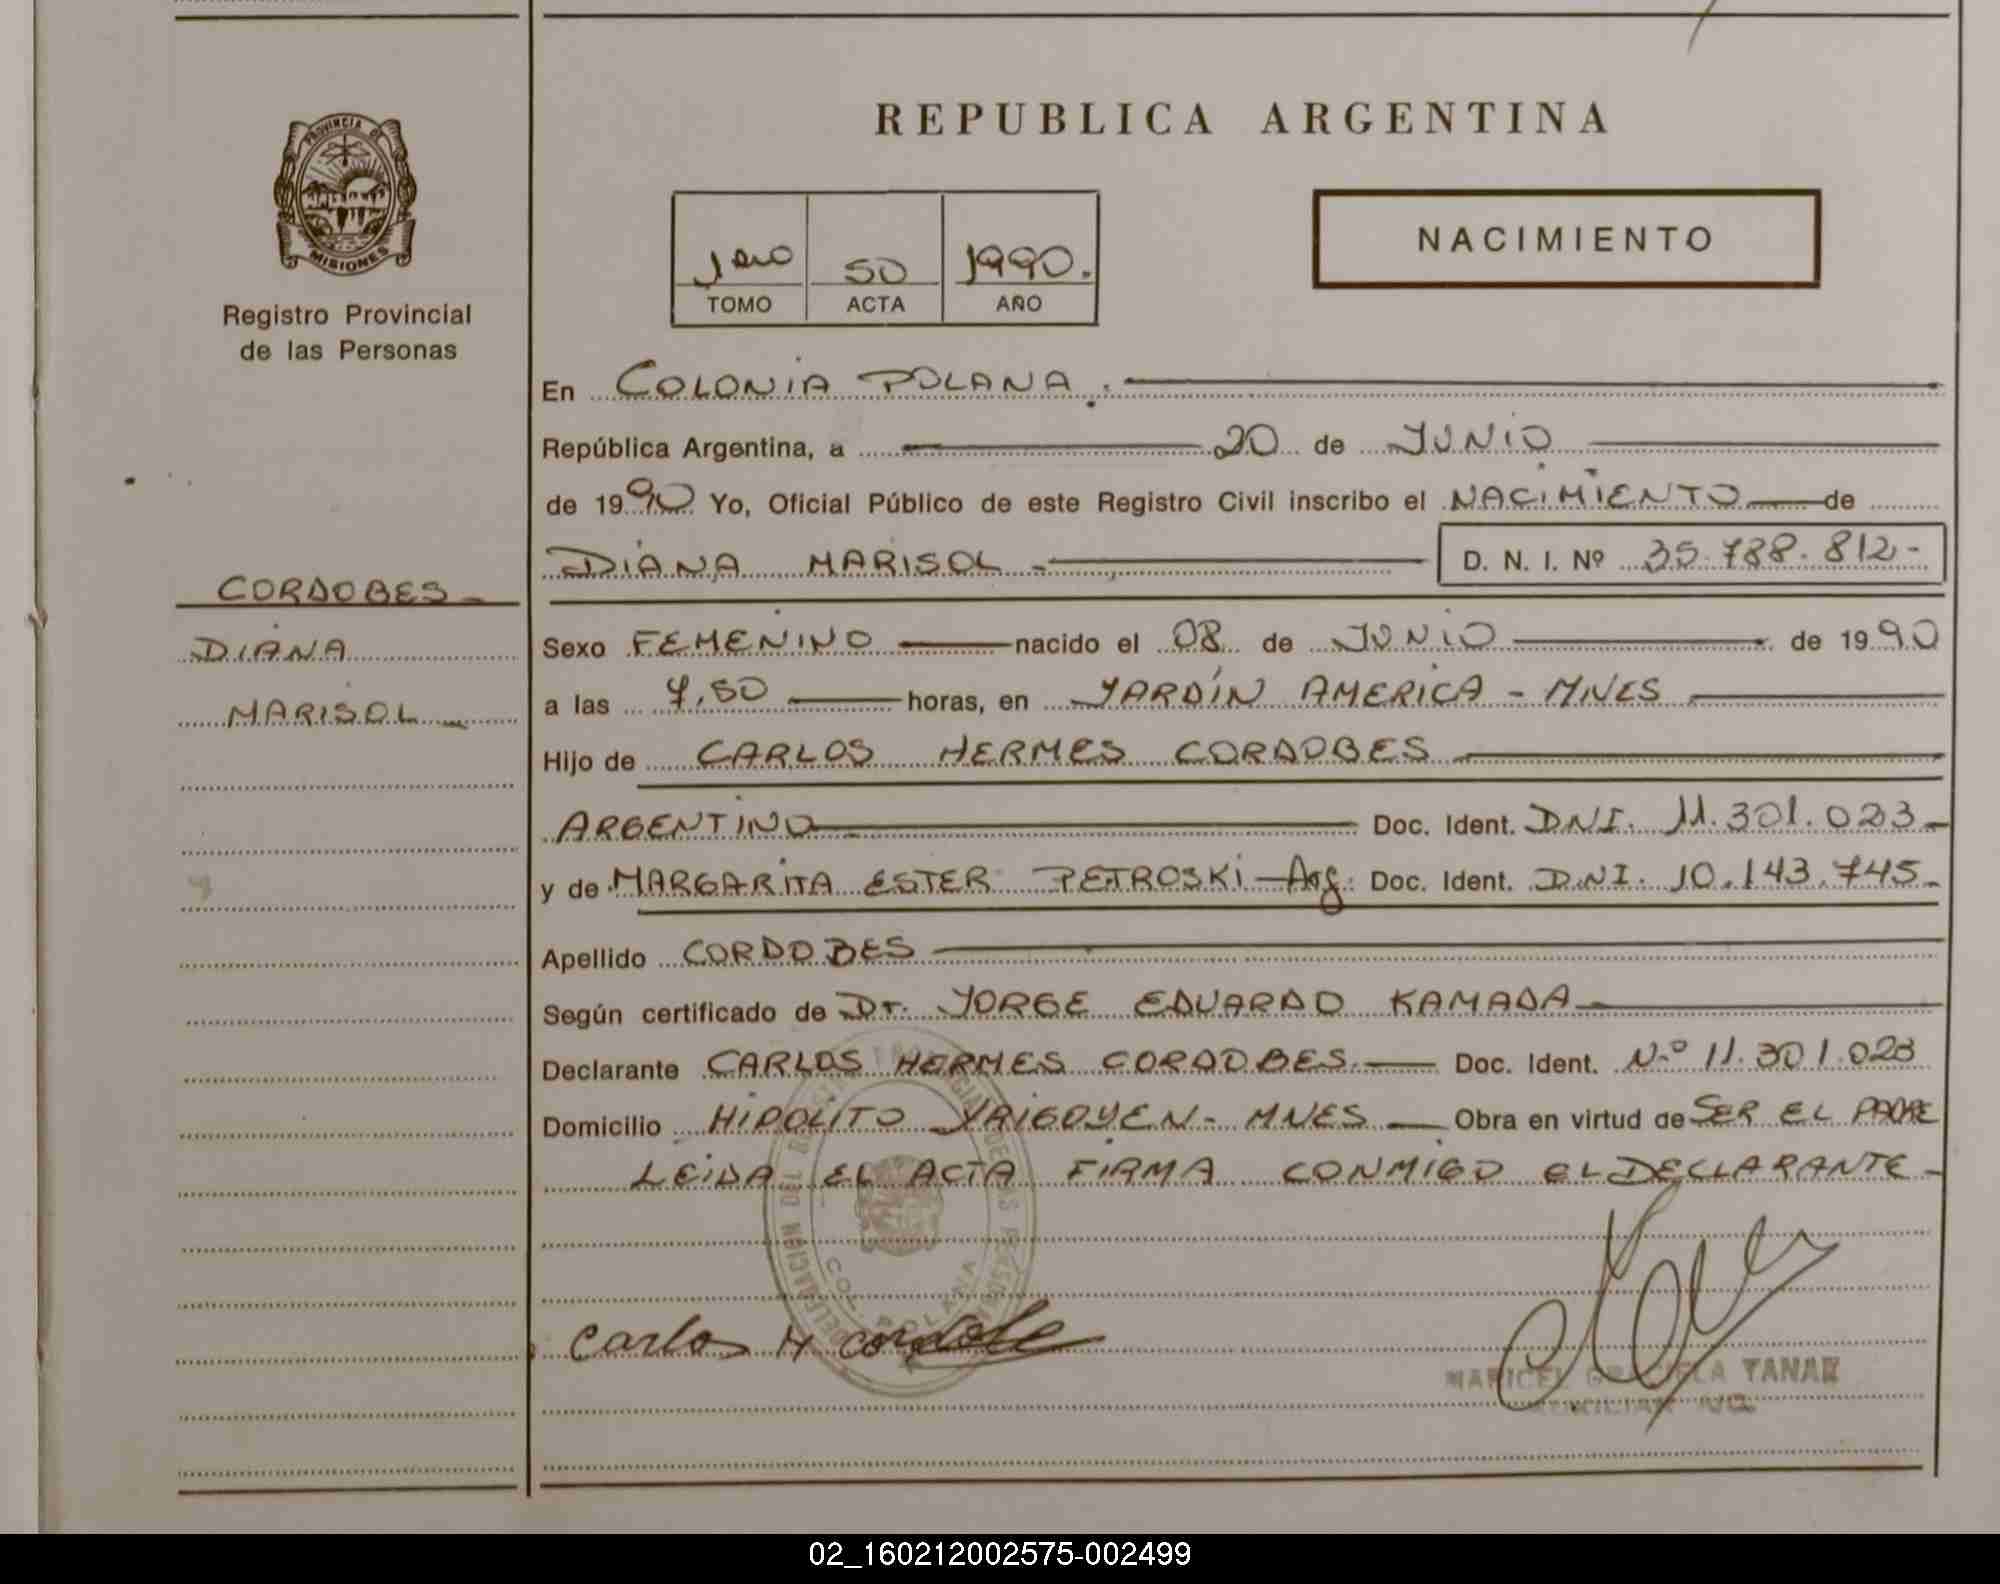 REPUBLICA ARGENTINA
PROVINCIA DE
MISIONES
Registro Provincial
de las Personas
1ero 50 1990.
TOMO ACTA AÑO
NACIMIENTO
CORDOBES
DIANA
MARISOL
En COLONIA POLANA.
República Argentina, a 20 de JUNIO
de 1990 Yo, Oficial Público de este Registro Civil inscribo el NACIMIENTO de
DIANA MARISOL D. N. I. Nº 35.788.812-
Sexo FEMENINO nacido el 08 de JUNIO de 1990
a las 7,50 horas, en JARDÍN AMERICA - MNES
Hijo de CARLOS HERMES CORDOBES
ARGENTINO Doc. Ident. DNI. 11.301.023-
y de MARGARITA ESTER PETROSKI - Arg. Doc. Ident. D.NI. 10.143.745-
Apellido CORDOBES
Según certificado de Dr. JORGE EDUARDO KAMADA
Declarante CARLOS HERMES CORDOBES Doc. Ident. N.º 11.301.023
Domicilio HIPOLITO YRIGOYEN - MNES Obra en virtud de SER EL PADRE
LEIDA EL ACTA FIRMA CONMIGO EL DECLARANTE-
DELEGACION DEL REGISTRO PROVINCIAL DE LAS PERSONAS
COL. POLANA
Carlos H Cordobes
MARICEL YANAK
02_160212002575-002499